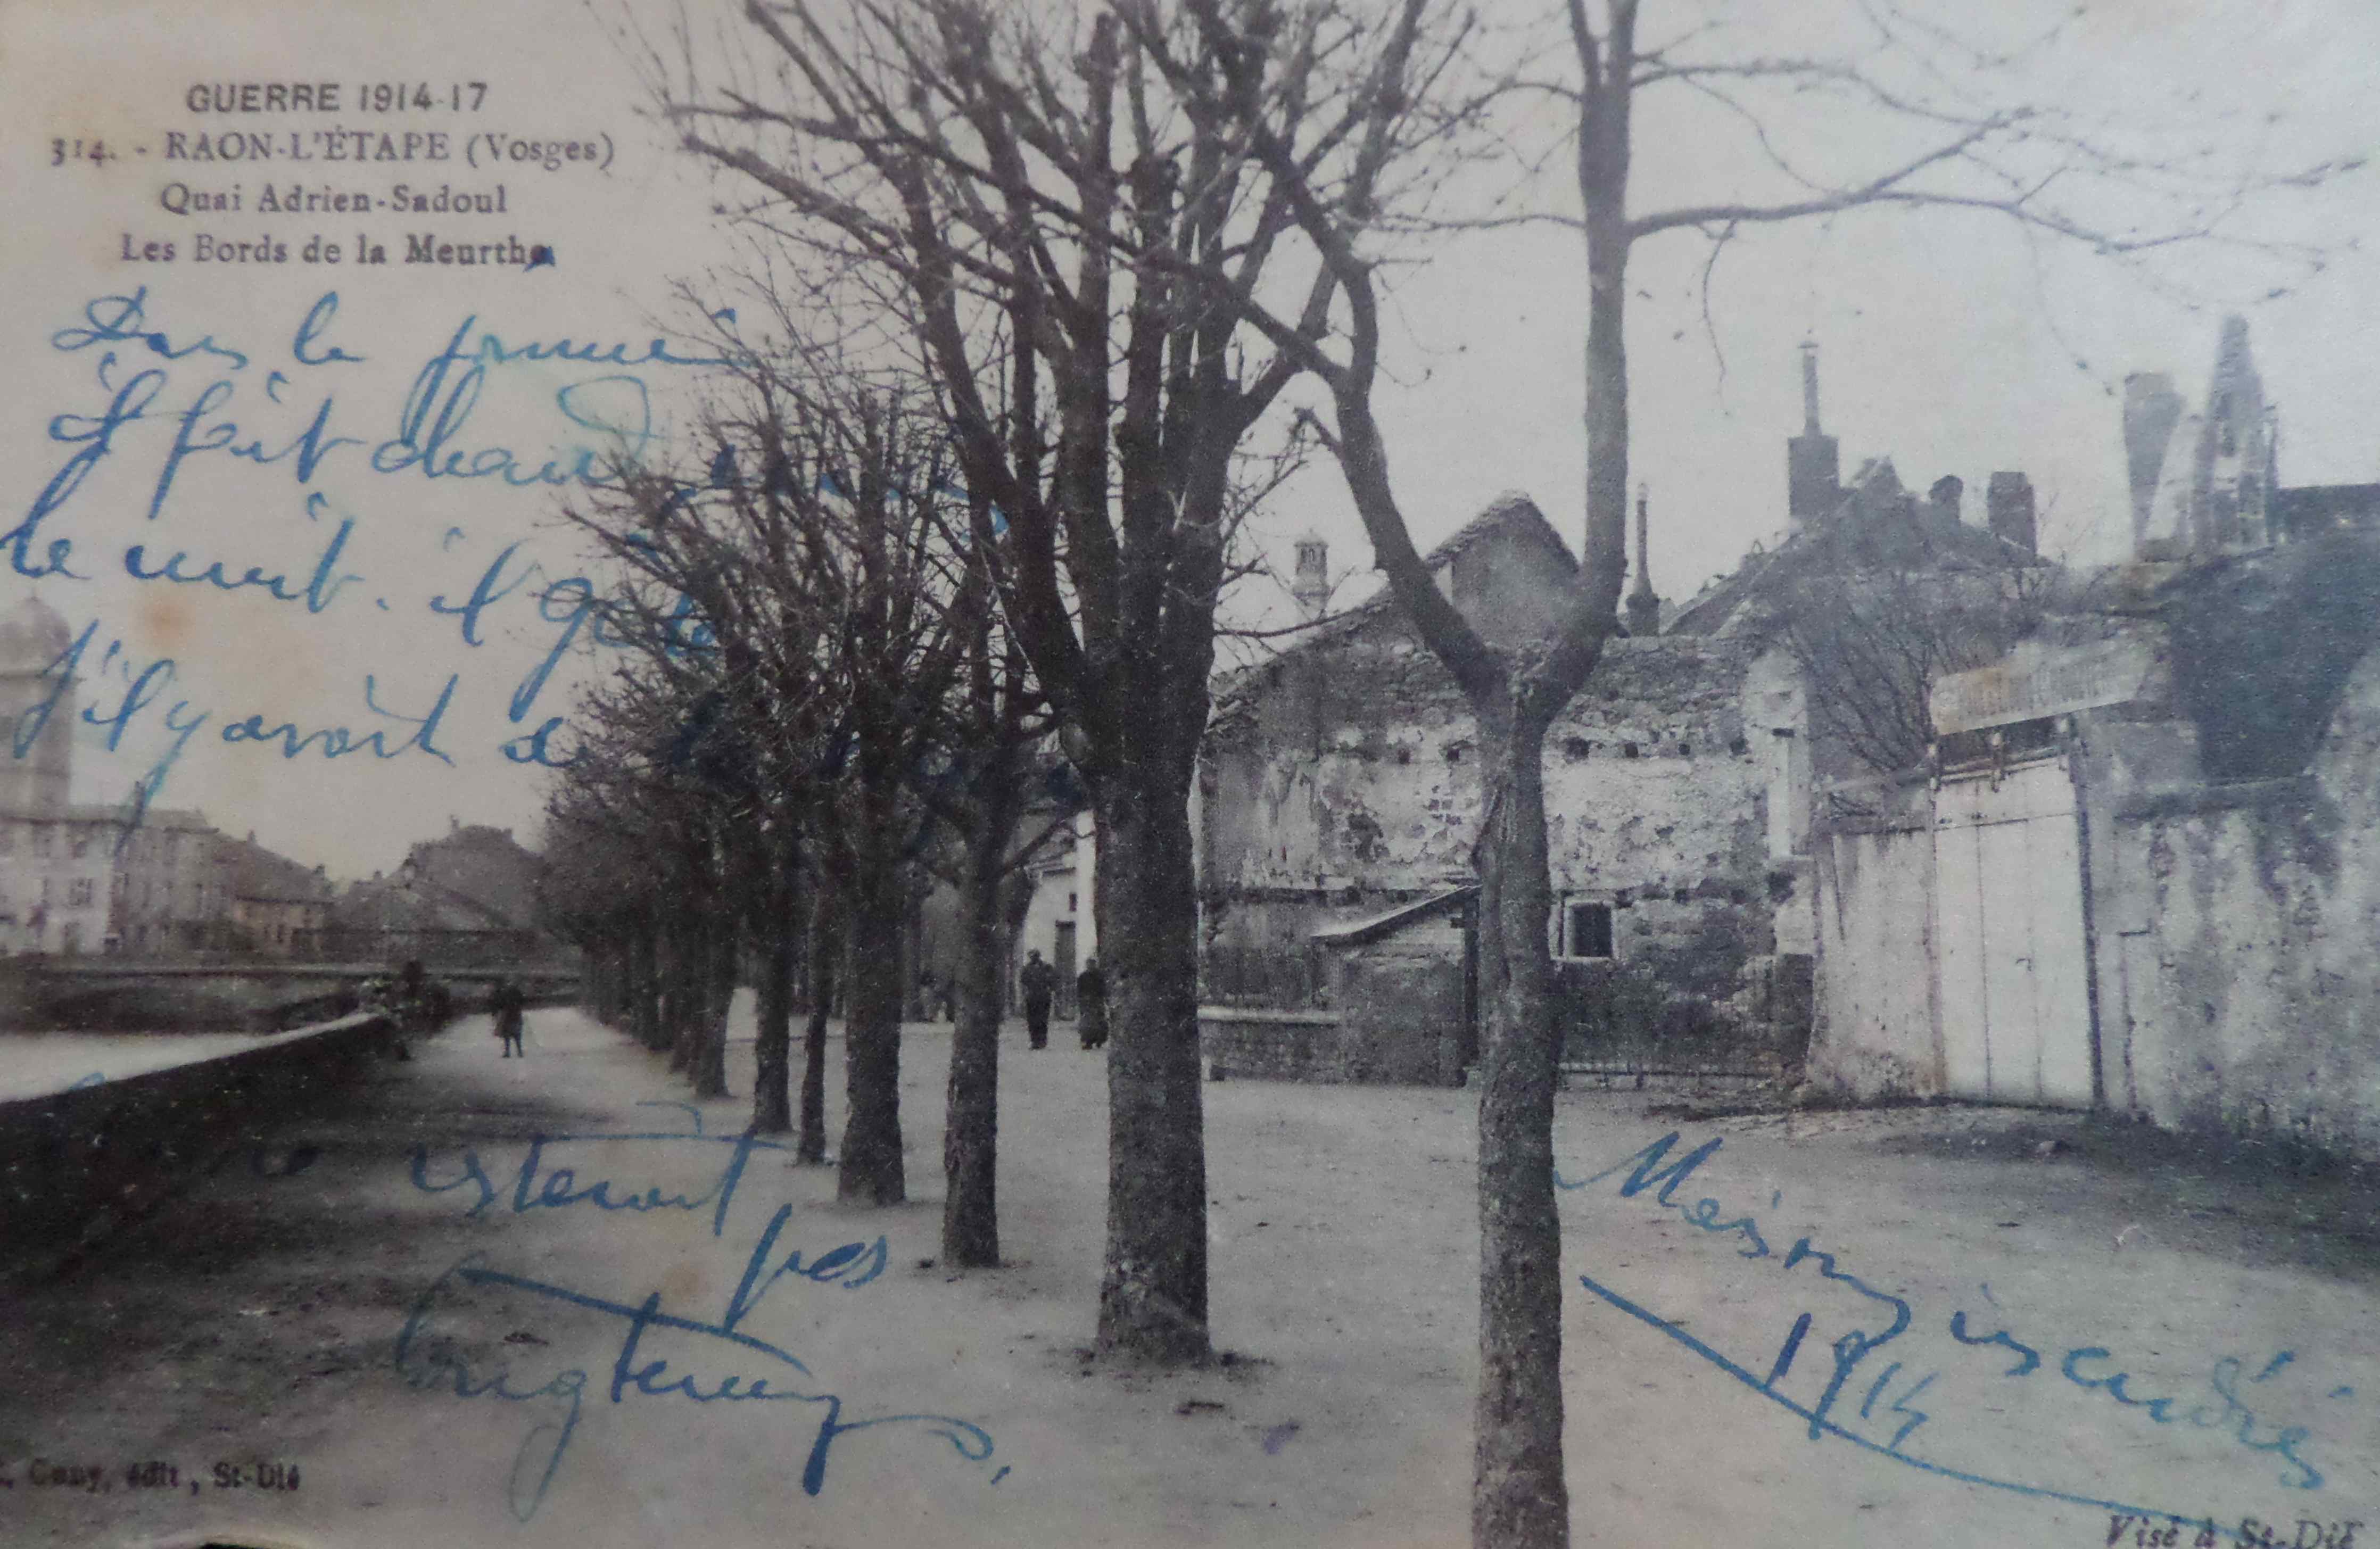 GUERRE 1914-17
314. - RAON-L'ÉTAPE (Vosges)
Quai Adrien-Sadoul
Les Bords de la Meurthe
Dans la journée
il fait chaud, mais
la nuit. il gèle
s'il y avait de
resterait pas
longtemps,
Maisons incendiées
1914
Cuny, édit, St-Dié
Visé à St-Dié